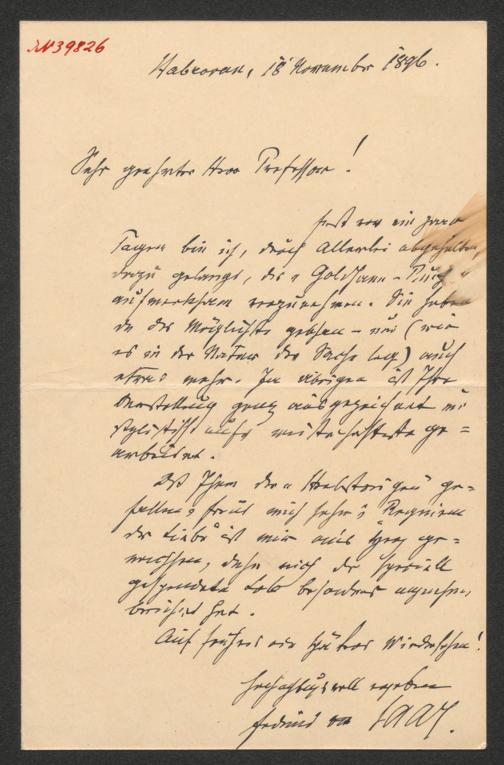 IN 39826
Habrovan, 18 November 1896.
Sehr geehrter Herr Professor!
Erst vor ein paar
Tagen bin ich, durch Allerlei abgehalten,
dazu gelangt, die „Goldhann-
aufmerksam vorzunehmen. Sie haben
da das Möglichste gegeben – und (wie
es in der Natur der Sache lag) auch
etwas mehr. Im übrigen ist Ihre
Darstellung ganz ausgezeichnet und
stylistisch aufs meisterhafteste ge=
arbeitet.
Daß Ihnen die „Herbstreigen" ge=
fallen, freut mich sehr; „Requiem
der Liebe" ist mir ans Herz ge=
wachsen, daher mich das speciell
gespendete Lob besonders angenehm
berührt hat.
Auf früheres oder späteres Wiedersehen!
Hochachtungsvoll ergeben
Ferdinand von Saar.